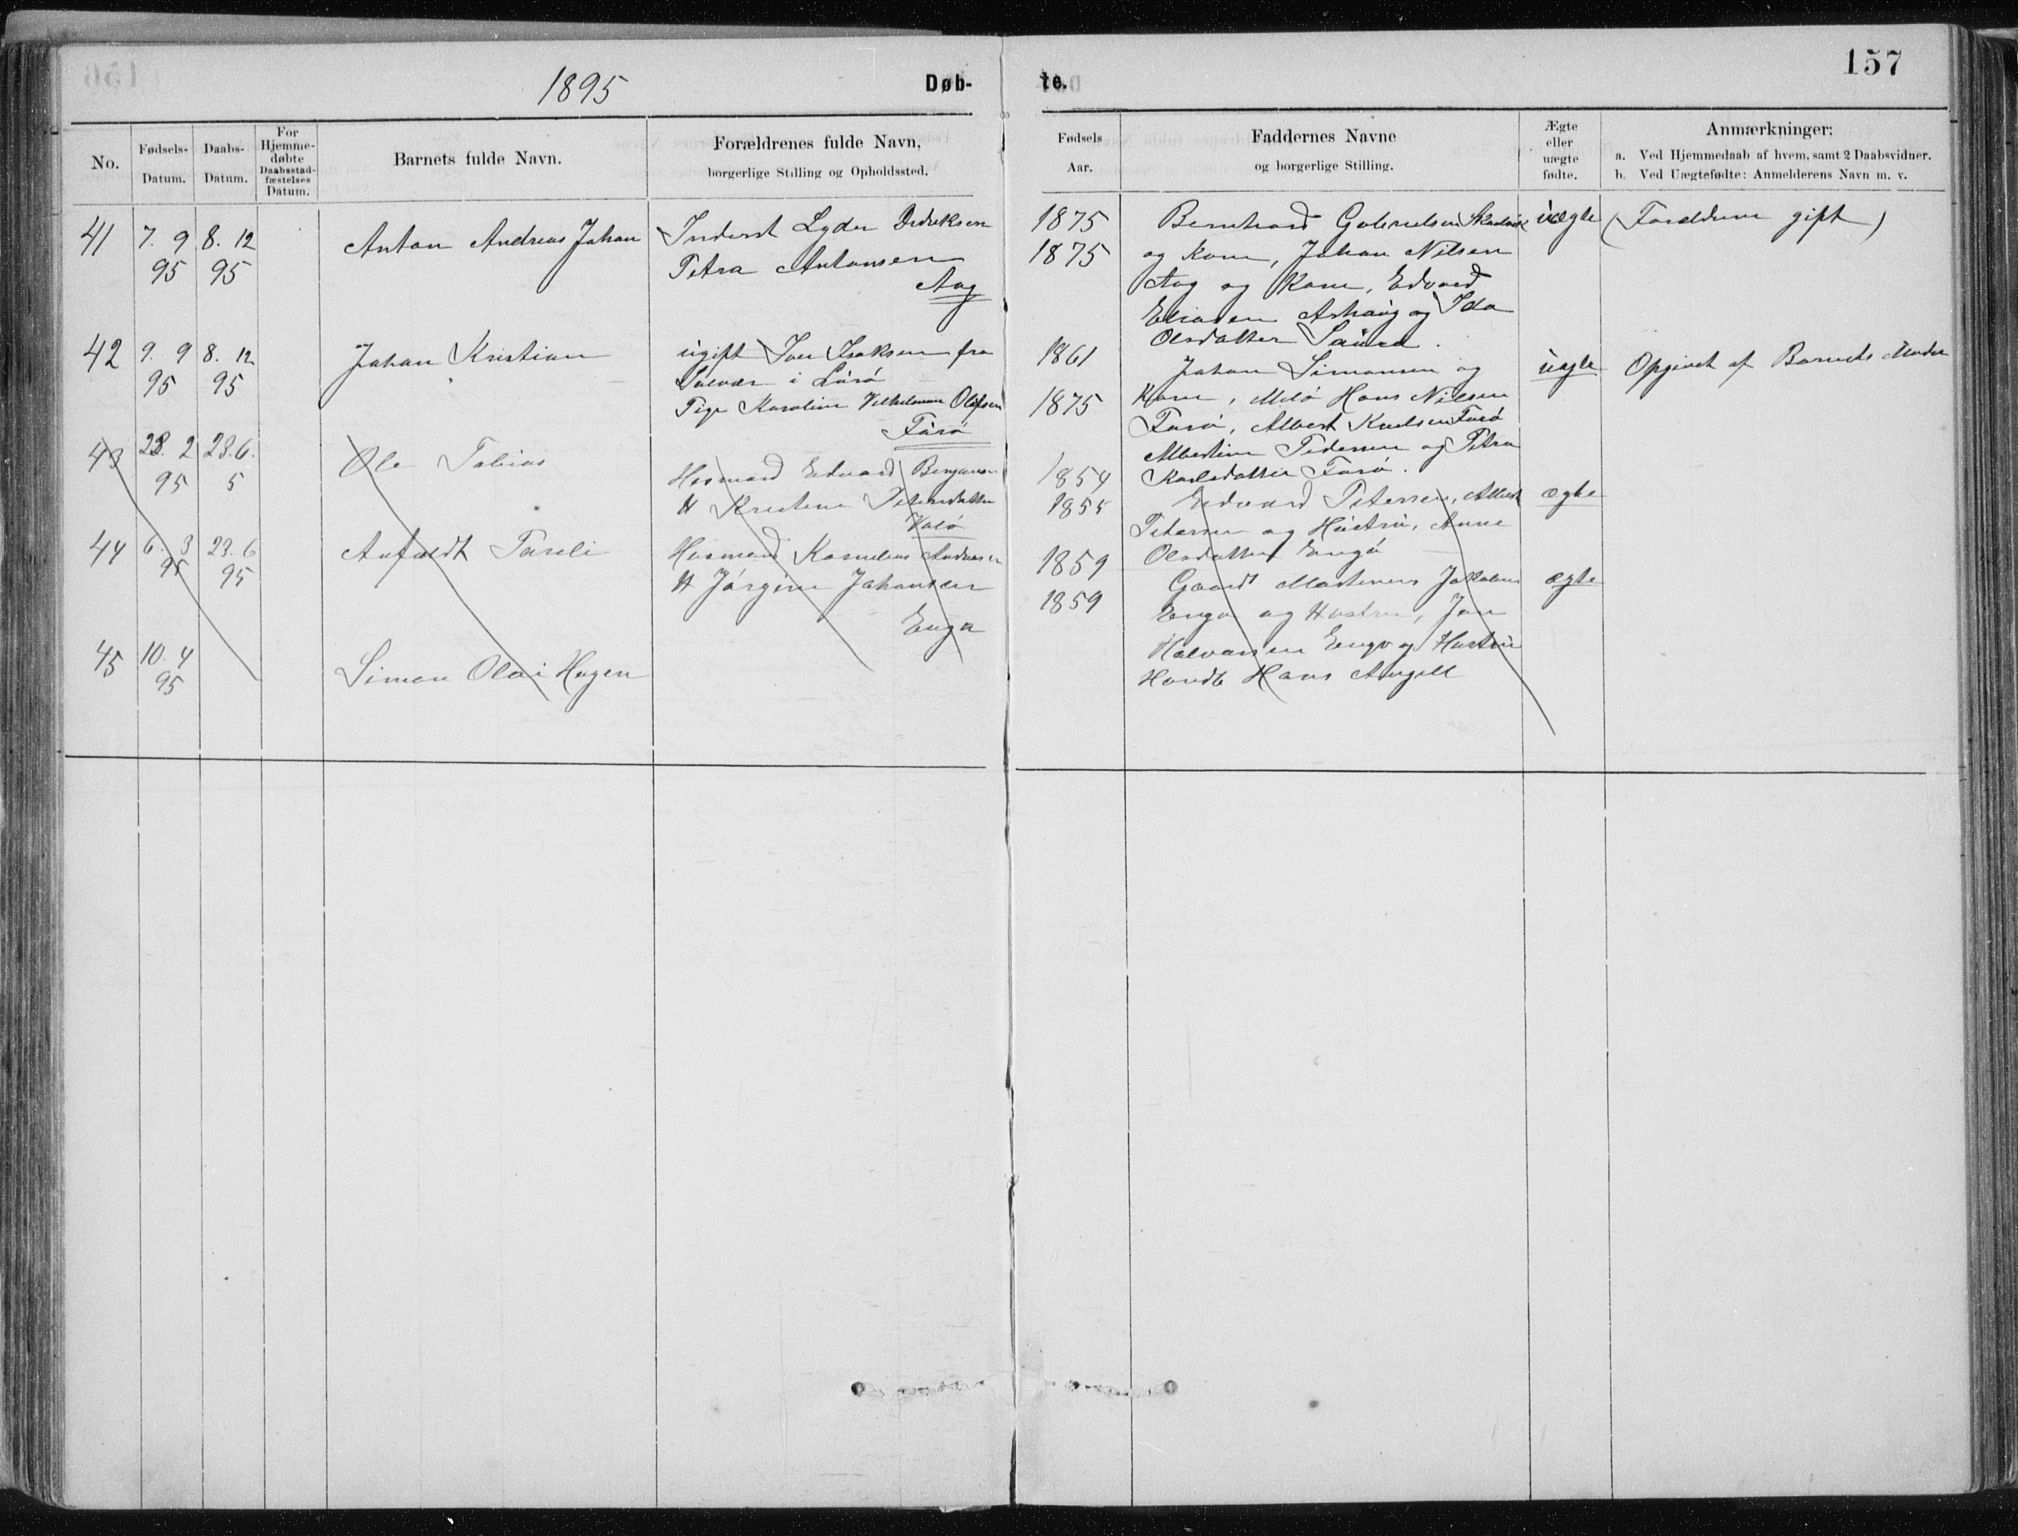 1895
Døb-
te.
157
No.
Fødsels-
Datum.
Daabs-
Datum.
For
Hjemme-
døbte
Daabsstad-
fæstelses
Datum.
Barnets fulde Navn.
Forældrenes fulde Navn,
borgerlige Stilling og Opholdssted.
Fødsels
Aar.
Faddernes Navne
og borgerlige Stilling.
Ægte
eller
uægte
fødte.
Anmærkninger:
a. Ved Hjemmedaab af hvem, samt 2 Daabsvidner.
b. Ved Uægtefødte: Anmelderens Navn m. v.
41
7. 9
95
8. 12
95
Anton Andreas Johan
Inderst Lyder Dedriksen
Petra Antonsen
Aag
1875
1875
Bernhard Gabrielsen
og Kone, Johan Nilsen
Aag og Kone, Edvard
Eliasen Ashaug og Ida
Olsdatter
uægte
(Forældrene gift)
42
9. 9
95
8. 12
95
Johan Kristian
ugift Iver Isaksen fra
i Lurø
Pige Karoline Vilhelmine Olufsen
Farø
1861
1875
Johan Simonsen og
Kone, Hans Nilsen
Farø, Albert Knelsen Farø
Albertine Pedersen og Petra
Karlsdatter Farø.
uægte
Opgivet af Barnets Moder
43
28. 2
95
23. 6.
5
Ole Tobias
Husmand Edvard
H Kristine Petersdatter
Valø
1854
1855
Edvard Petersen, Albert
Petersen og Hustru, Anne
Olsdatter Engø
ægte
44
6. 3
95
23. 6
95
Husmand Kornelius Andersen
H Jørgine Johansen
Enga
1859
1859
Gaardb Martenus Jakobsen
Enga og Hustru, Jon
Halvorsen Engø og Hustru
Handb Hans Angell
ægte
45
10. 4
95
Simon Olai Hagen